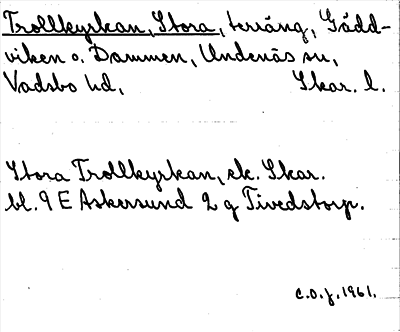 Trollkyrkan, Stora, terräng, Gädd-
viken o. Dammen, Undenäs sn,
Vadsbo hd, Skar. l.
Stora Trollkyrkan, ek. Skar.
bl. 9 E Askersund 2 g Tivedstorp.
C.O.J. 1961.